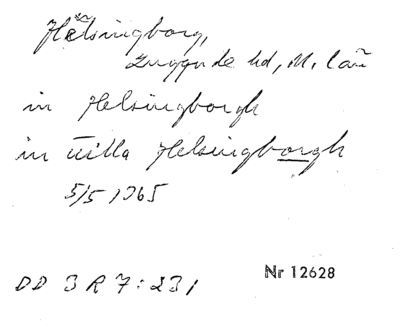 Helsingborg,
Luggude hd, M. län
in Helsingborgh
in uilla Helsingborgh
5/5 1365
DD 3 R 7: 231
Nr 12628